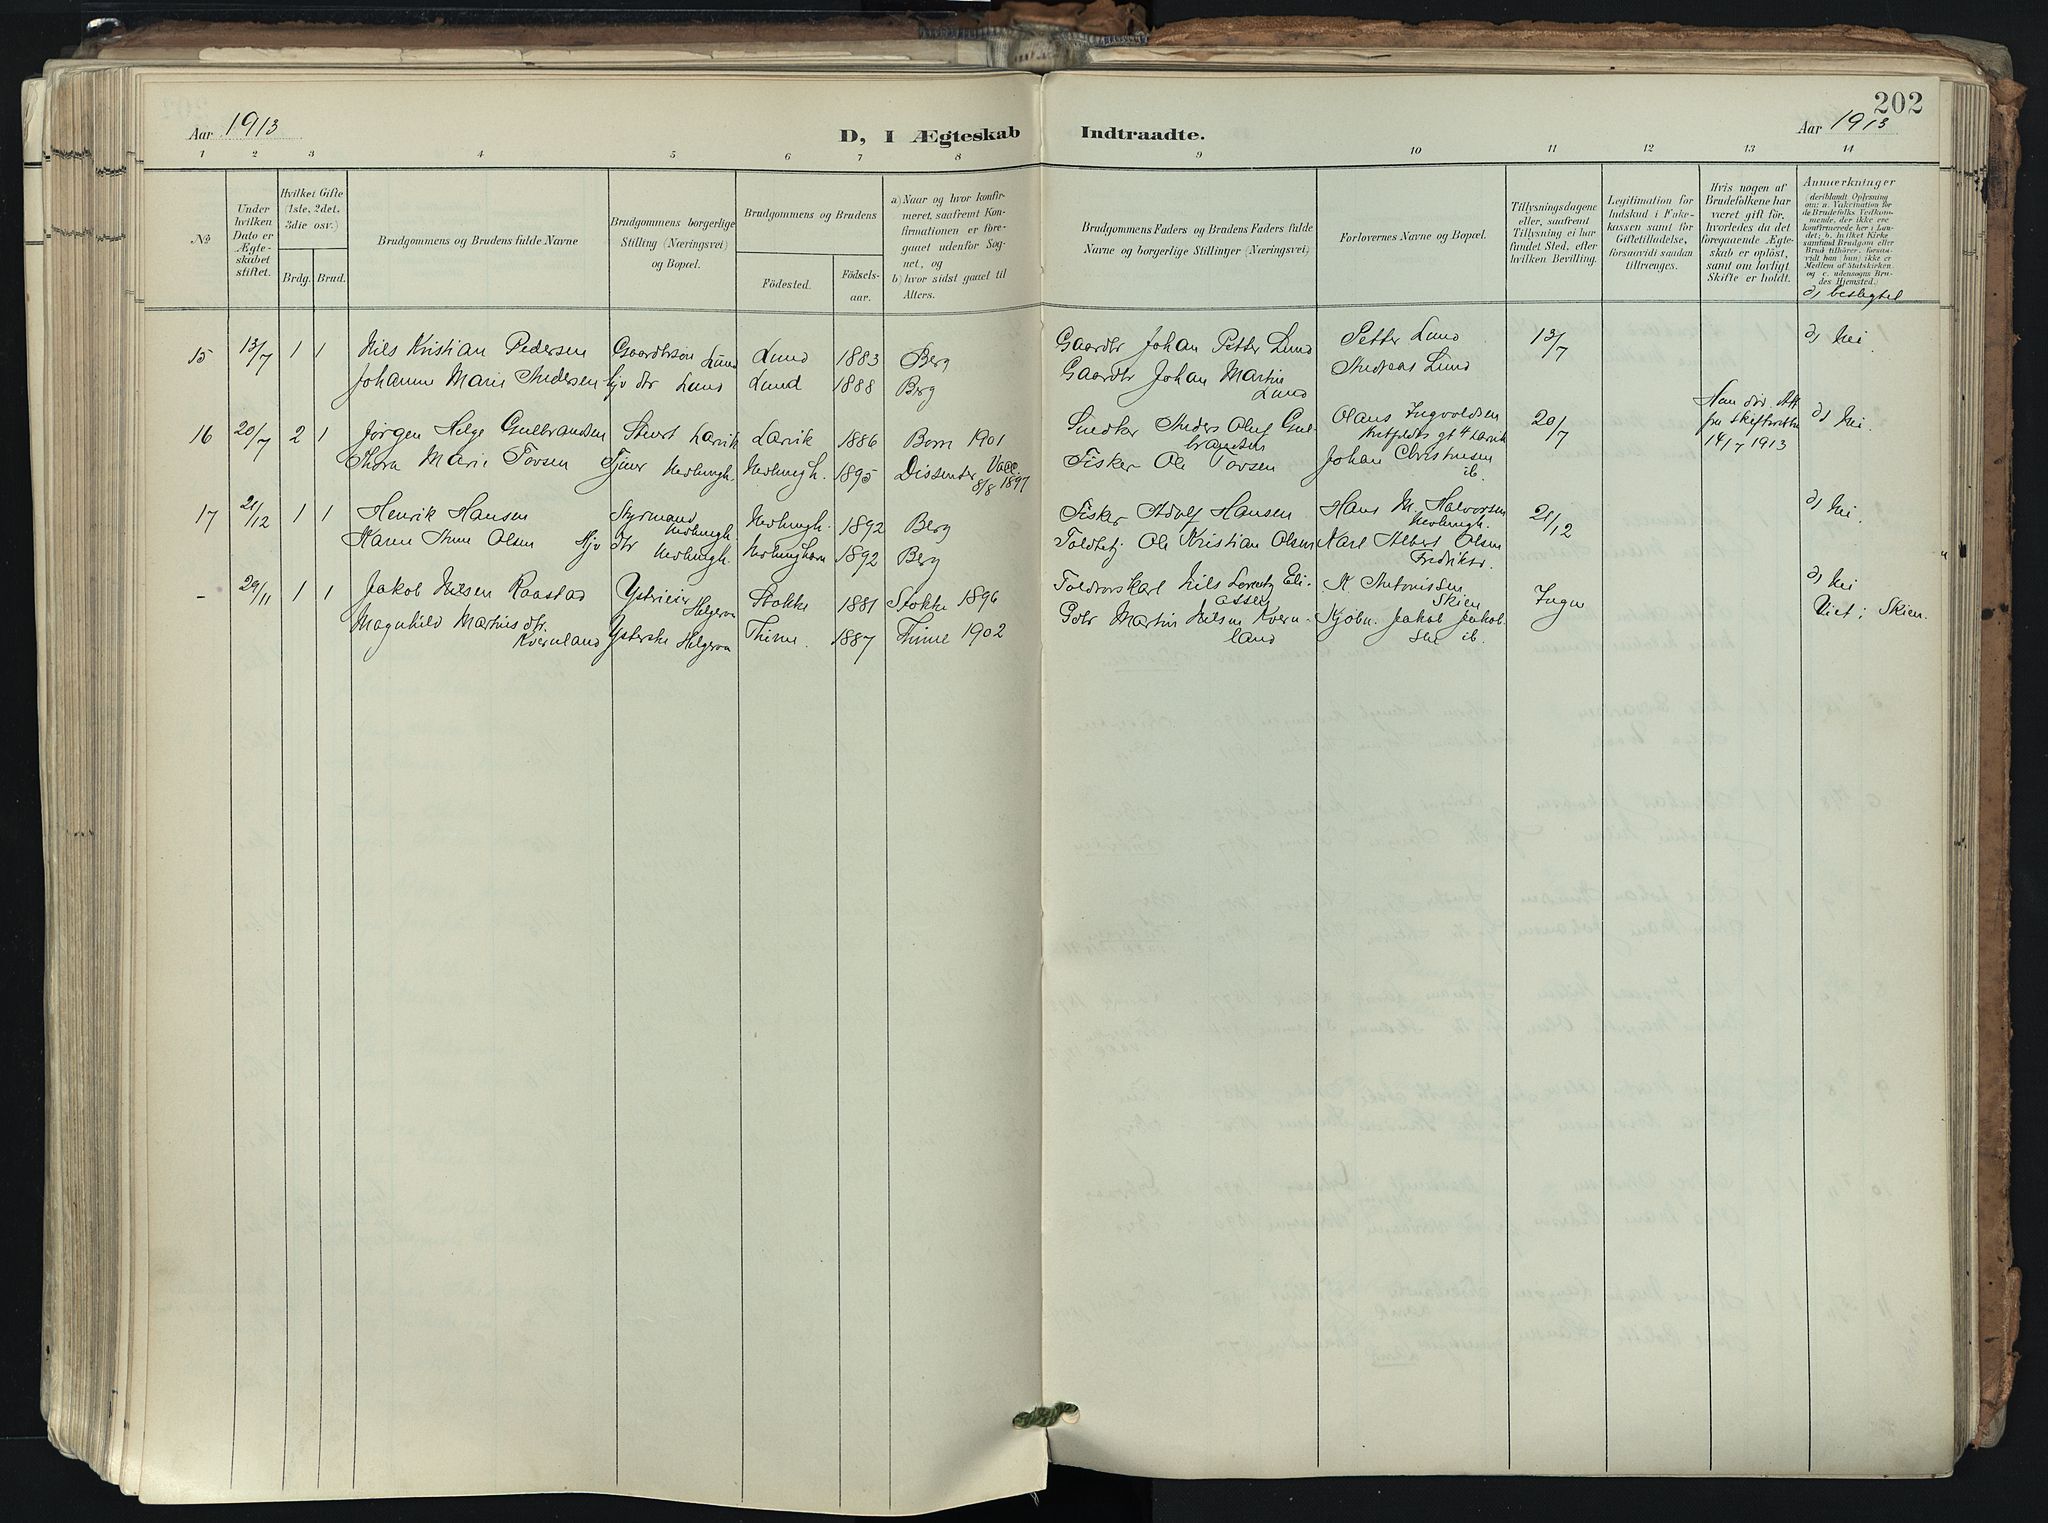 202
Aar 1913
D, I Ægteskab Indtraadte.
Aar 1913
1 2 3 4 5 6 7 8 9 10 11 12 13 14
No
Under hvilken Dato er Ægteskabet stiftet.
Hvilket Gifte (1ste, 2det, 3die osv.)
Brdg. Brud.
Brudgommens og Brudens fulde Navne
Brudgommens borgerlige Stilling (Næringsvei) og Bopæl.
Brudgommens og Brudens
Födested.
Födselsaar.
a) Naar og hvor konfirmeret, saafremt Konfirmationen er foregaaet udenfor Sognet, og
b) hvor sidst gaaet til Alters.
Brudgommens Faders og Brudens Faders fulde Navne og borgerlige Stillinger (Næringsvei)
Forlovernes Navne og Bopæl.
Tillysningsdagene eller, saafremt Tillysning ei har fundet Sted, efter hvilken Bevilling.
Legitimation for Indskud i Enkekassen samt for Giftetilladelse, forsaavidt saadan tiltrænges.
Hvis nogen af Brudefolkene har været gift før, hvorledes du det foregaaende Ægteskab er opløst, samt om lovligt Skifte er holdt.
Anmærkninger (deriblandt Oplysning om: a. Vakcination for de Brudefolks Vedkommende, der ikke ere konfirmerede her i Landet; b. hvilket Kirkesamfund Brudgom eller Brud tilhører, forsaavidt han (hun) ikke er Medlem af Statskirken, og c. udensogns Brudes Hjemsted.)
d) beslegtet
15 13/7 1 1 Nils Kristian Pedersen Gaardbrsøn Lund Lund 1883 Berg Gaardbr Johan Petter Lund Petter Lund 13/7 d) Nei.
Johanne Marie Andersen hjv dtr Lund Lund 1888 Berg Gaardbr Johan Martin Lund Andreas Lund
16 20/7 2 1 Jørgen Helge Gulbrandsen Stuert Larvik Larvik 1886 Born 1901 Snedker Anders Oluf Gulbrandsen Olaus Ingvoldsen gt 4 Larvik 20/7 Han Att fra Skifteretten 14/7 1913 d) Nei.
Thora Marie Tovsen Tjener Nevlungh. Nevlungh. 1895 Dissenter Vacc. 8/8 1897 Fisker Ole Tovsen Johan Christensen ib.
17 21/12 1 1 Henrik Hansen Styrmand Nevlungh. Nevlungh. 1892 Berg Fisker Adolf Hansen Hans M. Halvorsen Nevlungh. 21/12 d) Nei.
Karen Anne Olsen Hjv dtr Nevlungh. Nevlunghavn 1892 Berg Toldbetj Ole Kristian Olsen Karl Albert Olsen Fredrikst.
- 29/11 1 1 Jakob Nilsen Raastad Ysterieier Helgeroa Stokke 1881 Stokke 1896 Nils Lorentz Eliassen A Antonissen Skien Ingen d) Nei Viet i Skien.
Magnhild Martins dtr. Kvernland Ysterske Helgeroa Thime. 1887 Thime 1902 Gdbr Martin Nilsen Kvernland Kjøbm. Jakob Jakobsen ib.